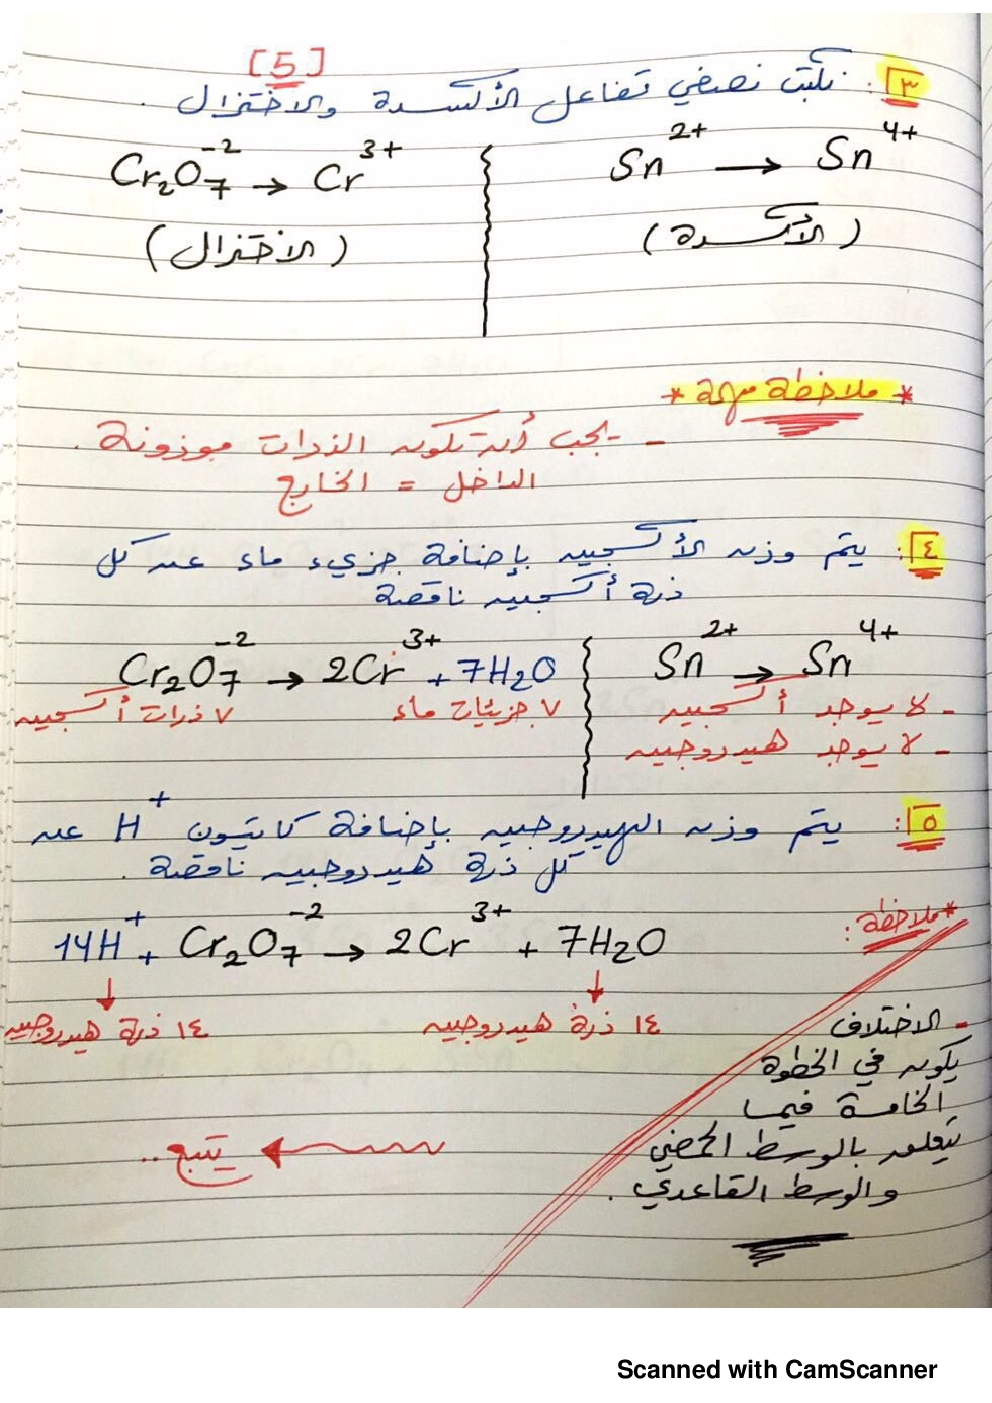 [5]
٣: نكتب نصفي تفاعل الأكسدة والاختزال.
Sn²⁺ → Sn⁴⁺
(الأكسدة)
Cr₂O₇⁻² → Cr³⁺
(الاختزال)
* ملاحظة مهمة *
- يجب أن تكون الذرات موزونة.
الداخل = الخارج
٤: يتم وزن الأكسجين بإضافة جزيء ماء عن كل
ذرة أكسجين ناقصة
Sn²⁺ → Sn⁴⁺
- لا يوجد أكسجين
- لا يوجد هيدروجين
Cr₂O₇⁻² → 2Cr³⁺ + 7H₂O
٧ جزيئات ماء
٧ ذرات أكسجين
٥: يتم وزن الهيدروجين بإضافة كاتيون H⁺ عن
كل ذرة هيدروجين ناقصة.
14H⁺ + Cr₂O₇⁻² → 2Cr³⁺ + 7H₂O
١٤ ذرة هيدروجين
١٤ ذرة هيدروجين
* ملاحظة:
- الاختلاف
يكون في الخطوة
الخامسة فيما
يتعلق بالوسط الحمضي
والوسط القاعدي.
يتبع..
Scanned with CamScanner